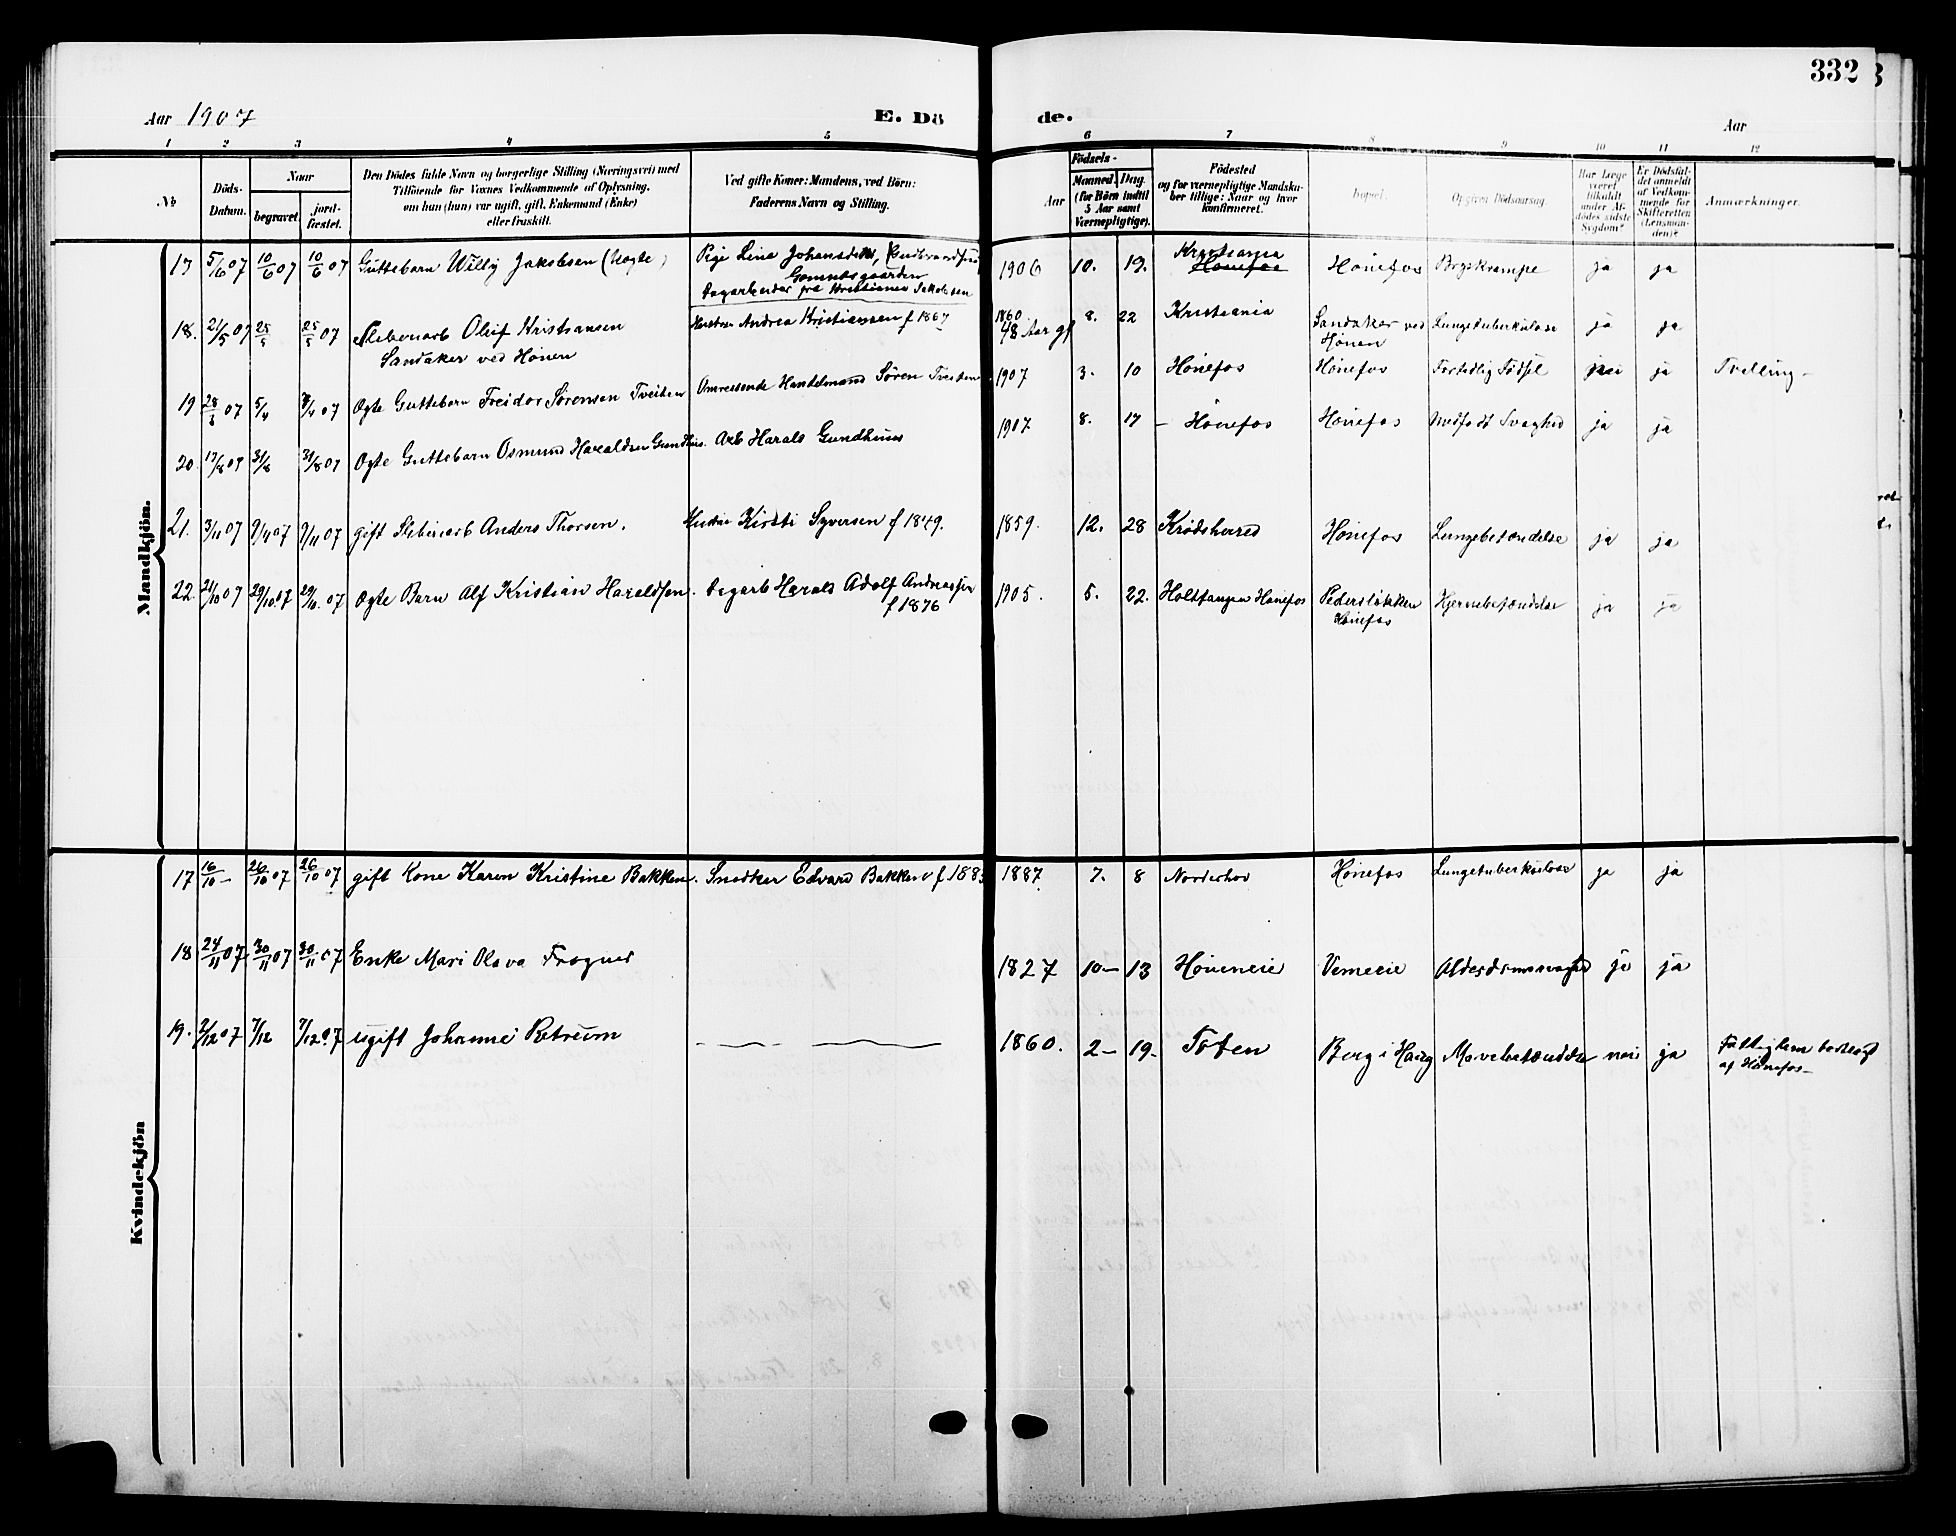 332
Aar 1907
E. Dö
de.
Aar
1 2 3 4 5
6 7 8 9 10 11 12
№
Döds-
Datum.
Naar
begravet.
jord-
fæstet.
Den Dödes fulde Navn og borgerlige Stilling (Næringsvei) med
Tilföiende for Voxnes Vedkommende af Oplysning,
om han (hun) var ugift, gift, Enkemand (Enke)
eller fraskilt.
Ved gifte Koner: Mandens, ved Börn:
Faderens Navn og Stilling.
Födsels-
Aar
Maaned. Dag.
(for Börn indtil
5 Aar samt
Værnepligtige).
Födested
og for værnepligtige Mandska-
ber tillige: Naar og hvor
konfirmeret.
Bopæl.
Opgiven Dödsaarsag.
Har Læge
været
tilkaldt
under Af-
dödes sidste
Sygdom?
Er Dödsfal-
det anmeldt
af Vedkom-
mende for
Skifteretten
(Lensman-
den)?
Anmærkninger.
Mandkjön.
17 5/6 07 10/6 07 10/6 07 Guttebarn Willy Jakobsen (Uægte) Pige Lina Johansdatter,
Dagarbeider fra Kristiania Jakobsen
1906 10. 19. Kristiania Hønefos Hønefos Brystkrampe ja ja
18. 21/5 07 25/5 25/5 07 Sliberiarb Oluf Kristiansen
Sandaker ved Hønen
Hustru Andrea Kristiansen f 1867
1860 48 Aar gl 8. 22 Kristiania Sandaker ved
Hønen
Lungetuberkulose ja ja
19 28/3 07 5/4 5/4 07 Ægte Guttebarn Freidor Sørensen Tveiten Omreisende Handelmand Søren Tveiten
1907 3. 10 Hønefos Hønefos Fortidlig Fødsel nei ja Tvelling
20. 17/8 07 31/8 31/8 07 Ægte Guttebarn Osmund Haraldsen Gundhus. Arb Harald Gundhuus
1907 8. 17 – Hønefos Hønefos Medfødt Svaghed ja ja
21. 3/11 07 9/11 07 9/11 07 gift Sliberiarb Anders Thorsen. Hustru Kirsti Syversen f 1849.
1859. 12. 28 Krødsherred Hønefos Lungebetændelse ja ja
22. 21/10 07 29/10 07 29/10 07 Ægte Barn Alf Kristian Haraldsen. Dagarb Harald Adolf Andreassen
f 1876
1905. 5. 22. Holttangen Hønefos Pedersløkken
Hønefos
Hjernebetændelse ja ja
Kvindekjön
17 16/10 – 26/10 07 26/10 07 gift Kone Karen Kristine Bakken. Snedker Edvard Bakken f 188
1887 7. 8 Norderhov Hønefos Lungetuberkulose ja ja
18 24/11 07 30/11 07 30/11 07 Enke Mari Olava Frogner
1827 10 – 13 Høneneie Vemeeie Alderdomssvaghed ja ja
19. 2/12 07 7/12 7/12 07 ugift Johanne Retrum
1860. 2 – 19. Toten Berg i Haug Mavebetændelse nei ja Fattiglem bortsat
af Hønefos –